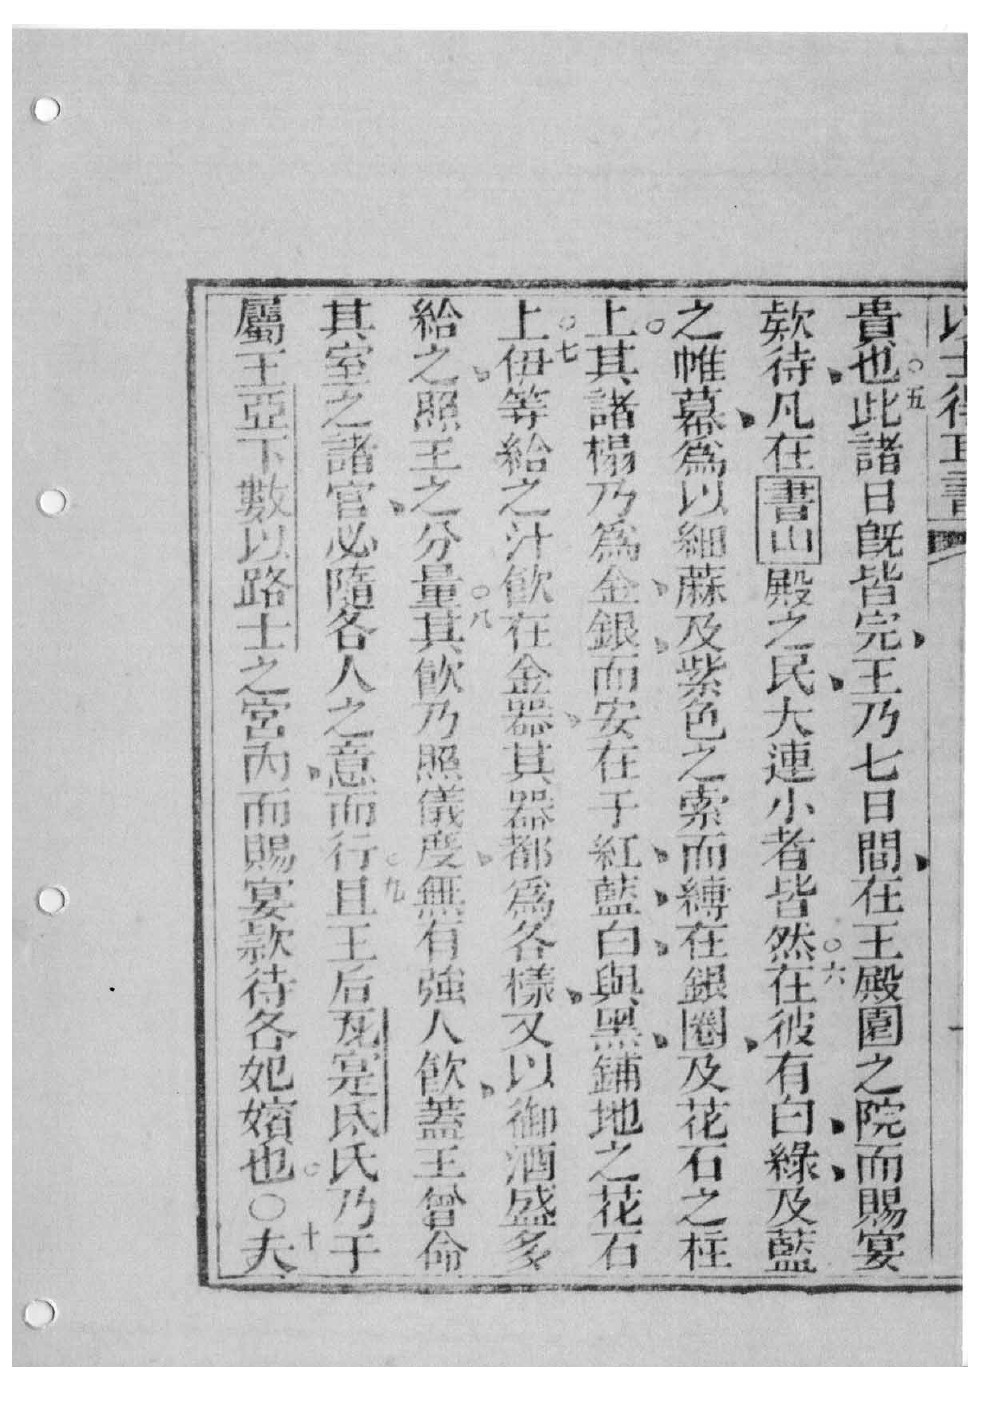 以士得耳書
貴也○五此諸日旣皆完王乃七日間在王殿園之院而賜宴
欵待凡在書山殿之民大連小者皆然○六在彼有白綠及藍
之帷幕爲以細蔴及紫色之索而縛在銀圈及花石之柱
上○其諸榻乃爲金銀而安在于紅藍白與黑鋪地之花石
上○七伊等給之汁飮在金器其器都爲各樣又以御酒盛多
給之照王之分量○八其飮乃照儀度無有強人飮蓋王曾命
其室之諸官必隨各人之意而行○九且王后瓦寔氏氏乃于
屬王亞下數以路士之宮內而賜宴款待各妃嬪也○○十夫